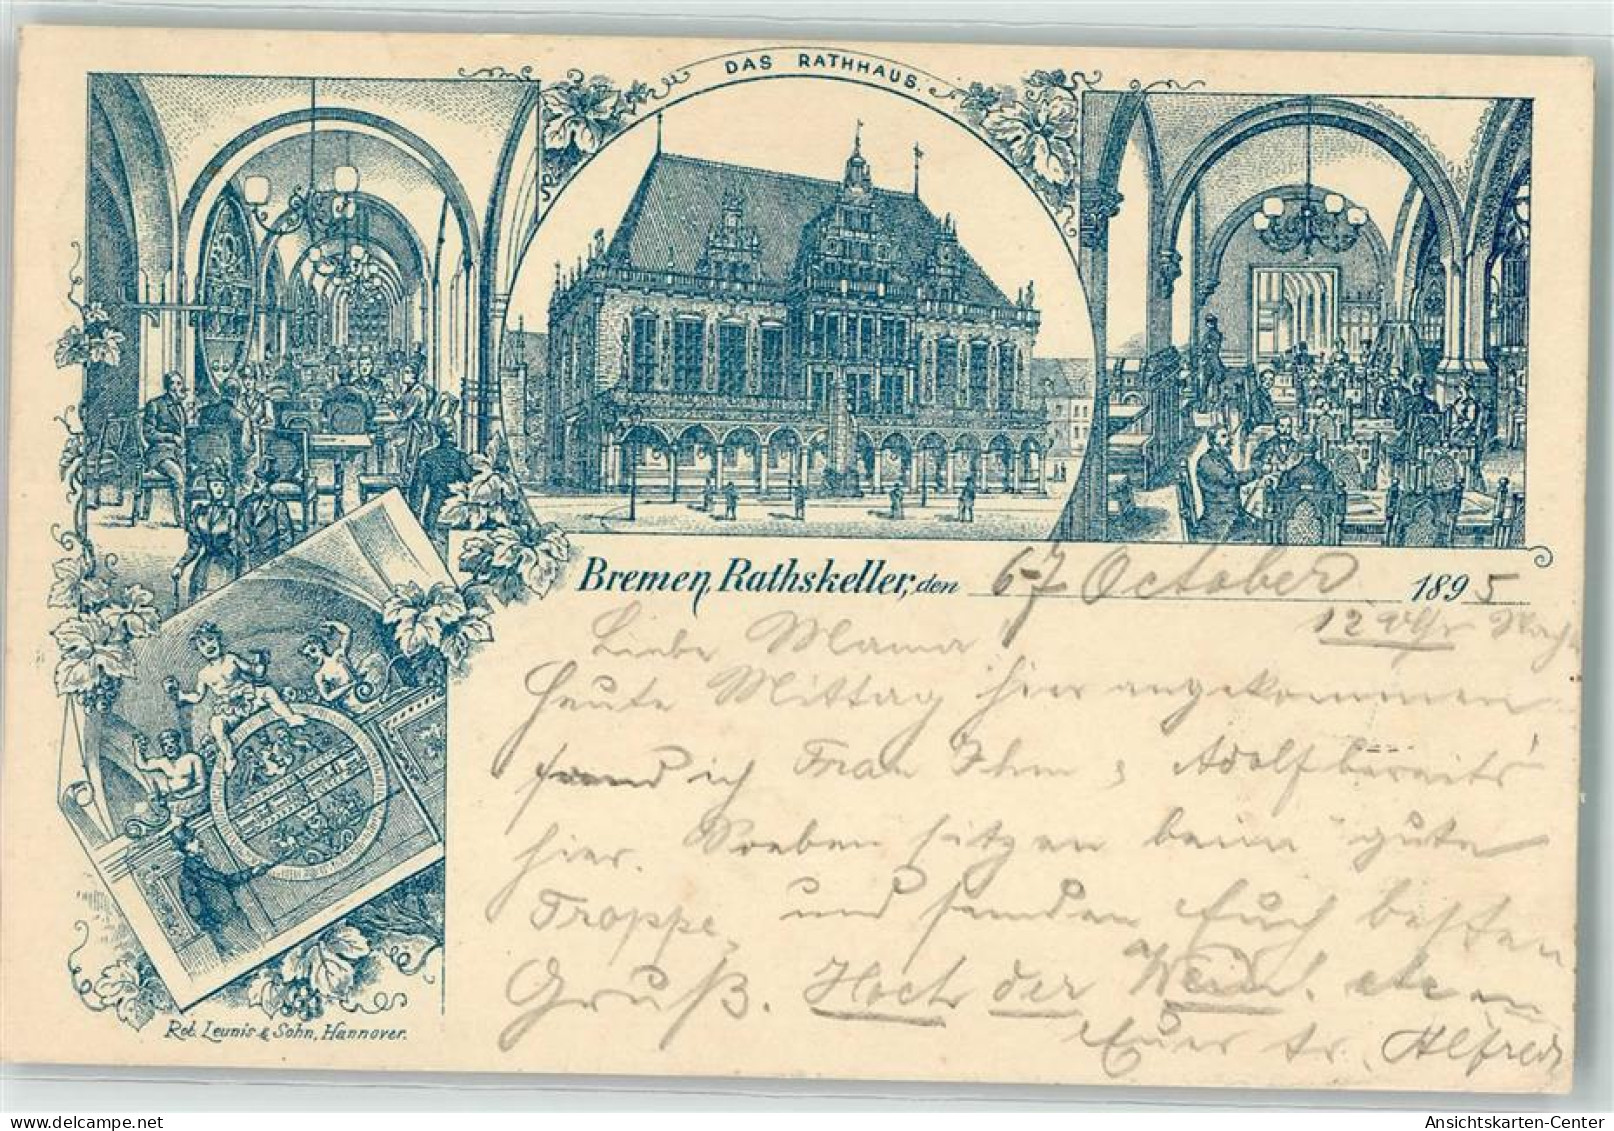 DAS RATHHAUS.
Bremen, Rathskeller, den 6-7 October 1895
12 Uhr Nachts
Liebe Mama
Heute Mittag hier angekommen
fand ich Frau Ihm & Adolf bereits
hier. Soeben sitzen beim gute
Troppe, und senden Euch besten
Gruß. Hoch der Wein! etc
Euer tr. Alfred
Rob. Leunis & Sohn, Hannover.
Ansichtskarten-Center